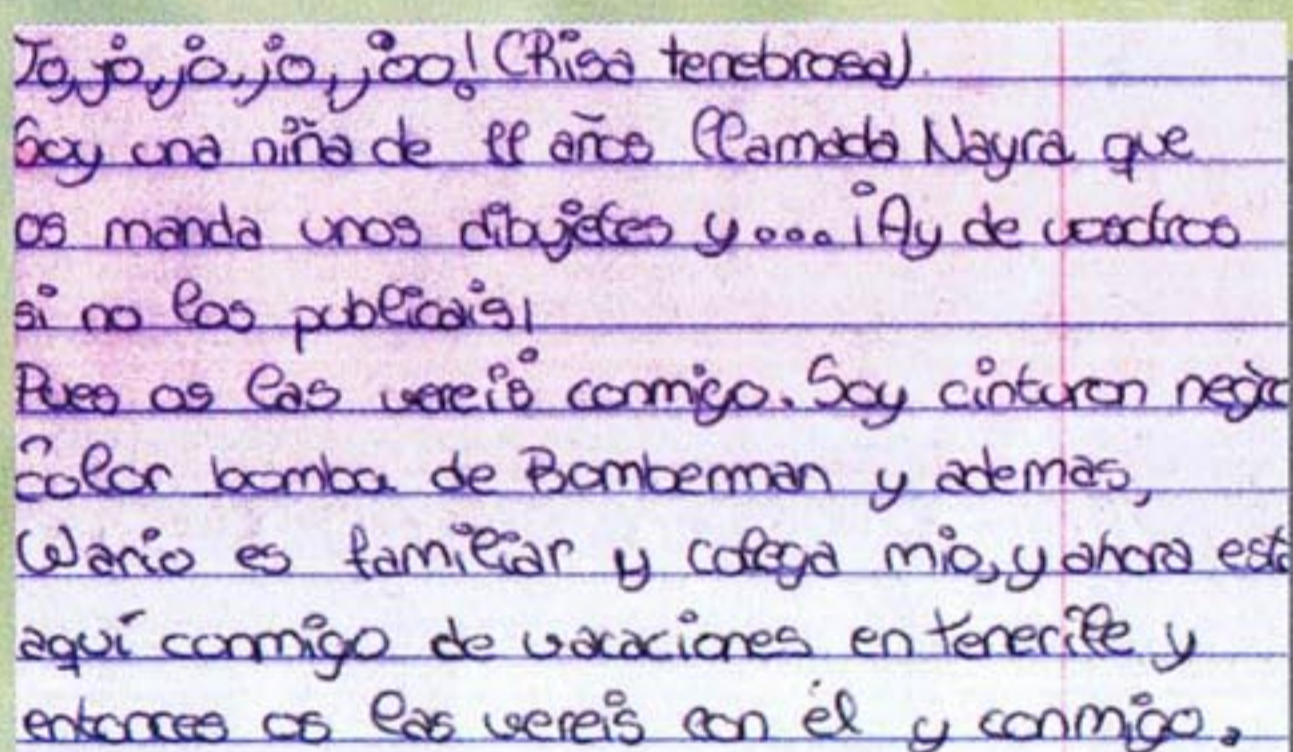 Jo, jo, jo, jo, joo! (Risa tenebrosa).
Soy una niña de 11 años llamada Nayra que
os manda unos dibujetes y... ¡Ay de vosotros
si no los publicais!
Pues os las vereis conmigo. Soy cinturon negro
color bomba de Bomberman y ademas,
Wario es familiar y colega mio, y ahora está
aquí conmigo de vacaciones en tenerife y
entonces os las vereis con él y conmigo.